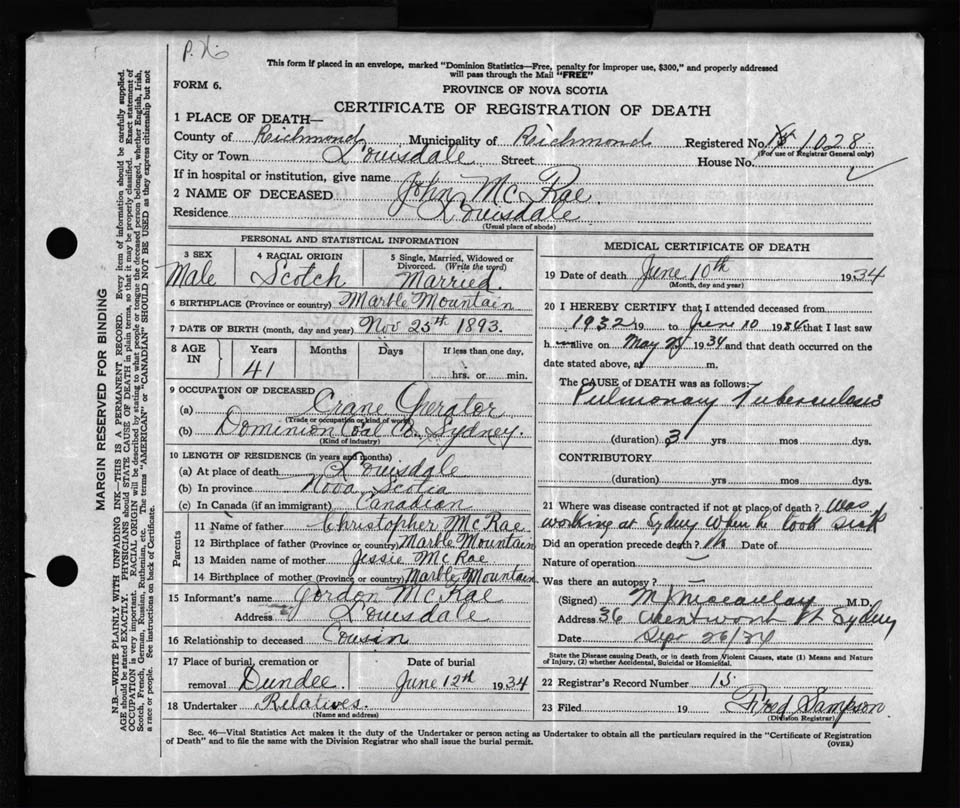 This form if placed in an envelope, marked "Dominion Statistics—Free, penalty for improper use, $300," and properly addressed
will pass through the Mail "FREE"
FORM 6.
PROVINCE OF NOVA SCOTIA
CERTIFICATE OF REGISTRATION OF DEATH
1 PLACE OF DEATH—
County of Richmond Municipality of Richmond Registered No. 1028
(For use of Registrar General only)
City or Town L'ouisdale Street House No.
If in hospital or institution, give name
2 NAME OF DECEASED John McRae
Residence L'ouisdale
(Usual place of abode)
MARGIN RESERVED FOR BINDING
N.B.—WRITE PLAINLY WITH UNFADING INK—THIS IS A PERMANENT RECORD. Every item of information should be carefully supplied.
AGE should be stated EXACTLY. PHYSICIANS should STATE CAUSE OF DEATH in plain terms, so that it may be properly classified. Exact statement of
OCCUPATION is very important. RACIAL ORIGIN will be described by stating to what people or tongue the deceased person belonged, whether English, Irish,
Scotch, French, German, Russian, Ruthenian, etc. The terms "AMERICAN" or "CANADIAN" SHOULD NOT BE USED as they express citizenship but not
a race or people. See instructions on back of Certificate.
PERSONAL AND STATISTICAL INFORMATION
3 SEX
Male
4 RACIAL ORIGIN
Scotch
5 Single, Married, Widowed or
Divorced. (Write the word)
Married.
6 BIRTHPLACE (Province or country) Marble Mountain
7 DATE OF BIRTH (month, day and year) Nov 25th 1893.
8 AGE IN Years Months Days If less than one day,
41 hrs. or min.
9 OCCUPATION OF DECEASED
(a) Crane Operator
(Trade or occupation or kind of work)
(b) Dominion Coal Co. Sydney.
(Kind of industry)
10 LENGTH OF RESIDENCE (in years and months)
(a) At place of death L'ouisdale
(b) In province Nova Scotia
(c) In Canada (if an immigrant) Canadian
Parents
11 Name of father Christopher McRae
12 Birthplace of father (Province or country) Marble Mountain
13 Maiden name of mother Jessie McRae
14 Birthplace of mother (Province or country) Marble Mountain.
15 Informant's name Gordon McRae
Address L'ouisdale
16 Relationship to deceased Cousin
17 Place of burial, cremation or
removal Dundee.
Date of burial
June 12th 1934
18 Undertaker Relatives.
(Name and address)
MEDICAL CERTIFICATE OF DEATH
19 Date of death June 10th 1934
(Month, day and year)
20 I HEREBY CERTIFY that I attended deceased from
1932 19 to June 10 1934 that I last saw
h alive on May 1934 and that death occurred on the
date stated above, at m.
The CAUSE of DEATH was as follows:
Pulmonary Tuberculosis
(duration) 3 yrs mos dys.
CONTRIBUTORY
(duration) yrs mos dys.
21 Where was disease contracted if not at place of death? was
working at Sydney when he took sick
Did an operation precede death? No Date of
Nature of operation —
Was there an autopsy? —
(Signed) M.D.
Address 36 St Sydney
Date Sept 26/34
State the Disease causing Death, or in death from Violent Causes, state (1) Means and Nature
of Injury, (2) whether Accidental, Suicidal or Homicidal.
22 Registrar's Record Number 15.
23 Filed 19 Fred Sampson
(Division Registrar)
Sec. 46—Vital Statistics Act makes it the duty of the Undertaker or person acting as Undertaker to obtain all the particulars required in the "Certificate of Registration
of Death" and to file the same with the Division Registrar who shall issue the burial permit.
(OVER)